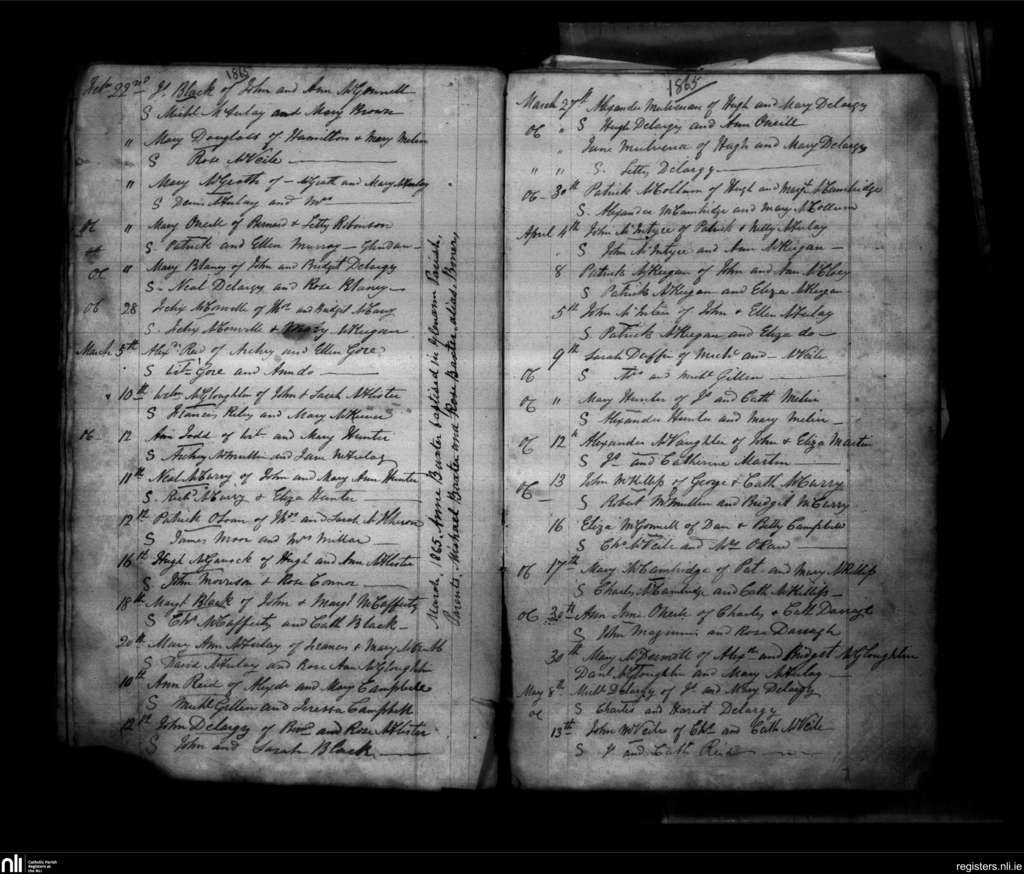 1865
Feb 22nd Js. Black of John and Ann McConnell
S Michl McAulay and Mary Brown
" Mary Douglass of Hamilton & Mary
S Rose McVeile
" Mary McGrath of - McGrath and Mary McAulay
S Denis McAulay and Mrs
06 " Mary Oneill of Bernard & Letty Robinson
S Patrick and Ellen Murray - Glendun -
06 " Mary Blaney of John and Bridget Delargy
S - Neal Delargy and Rose Blaney -
06 28 of Thos and Bridget
S. & Mary McKeegan
March 5th Alexr Reid of Archey and Ellen Gore
S Wm Gore and Ann do
10th McGloughlin of John & Sarah McAlister
S Francis and Mary
06 - 12 Ann Todd of Wm and Mary Hunter
S Archey and Jane McAulay
11th Neal McCarry of John and Mary Ann Hunter
S. Robt McCarry & Eliza Hunter
12th Patrick OLoan of Thos and Sarah
S James Moor and Mrs Millar -
16th Hugh of Hugh and Ann McAlister
S John Morrison & Rose Connor
18th Margt Black of John & Margt McCafferty
S Chs McCafferty and Cath Black -
20th Mary Ann McAulay of Francis & Mary
S David McAulay and Rose Ann McGloughlin
10th Ann Reid of and Mary Campbell
S Michl Gillen and Teressa Campbell
12th John Delargy of and Rose McAlister
S John and Sarah Black
March, 1865, Anne Baxter baptised in Glenann Parish,
Parents, Michael Baxter and Rose Baxter alias Boney,
1865
March 27th Alexander Mulvenna of Hugh and Mary Delargy
06 " S Hugh Delargy and Ann Oneill
" Jane Mulvenna of Hugh and Mary Delargy
" " S. Letty Delargy
06 - 30th Patrick McCollum of Hugh and Margt McCambridge
S. Alexander McCambridge and Mary McCollum
April 4th John McIntyre of Patrick & Nelly McAulay
S John McIntyre and Ann McKeegan -
8 Patrick McKeegan of John and
S Patrick McKeegan and Eliza McKeegan
5th John of John & Ellen McAulay
S Patrick McKeegan and Eliza do -
9th Sarah Duffin of Michl and - McVeile
06 S Thos and Michl Gillen
06 " Mary Hunter of Js and Cath
S - Alexander Hunter and Mary
06 12th Alexander McVaughten of John & Eliza Martin
S Js and Catherine Martin
06 - 13 John McKillop of George & Cath McCarry
S Robert McMullen and Bridget McCarry
16 Eliza McConnell of Dan & Betty Campbell
S Chs McVeile and
06 17th Mary McCambridge of Pat and Mary McKillop
S Charles McCambridge and Cath McKillop -
06 30th Ann Jane Oneile of Charles & Cath Darragh
S John Maginnis and Rose Darragh
30th Mary McDermott of Alexr and Bridget McGloughlin
Danl McGloughlin and Mary McAulay -
May 8th Michl Delargy of Js and Mary Delargy
06 S Charles and Hariot Delargy
13th John McVeile of Chs and Cath McVeile
S Js and Cath Reid
nli
Catholic Parish
Registers at
the NLI
registers.nli.ie